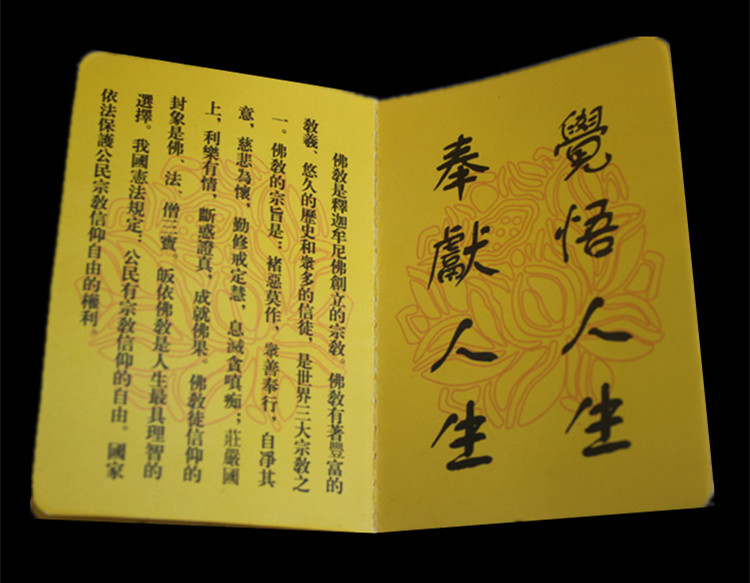 覺悟人生
奉獻人生
佛教是釋迦牟尼佛創立的宗教。佛教有著豐富的
教義、悠久的歷史和衆多的信徒，是世界三大宗教之
一。佛教的宗旨是：褚惡莫作，衆善奉行，自凈其
意，慈悲為懷，勤修戒定慧，息滅貪嗔痴；莊嚴國
上，利樂有情，斷惑證真，成就佛果。佛教徒信仰的
封象是佛、法、僧三寶。皈依佛教是人生最具理智的
選擇。我國憲法規定：公民有宗教信仰的自由。國家
依法保護公民宗教信仰自由的權利。